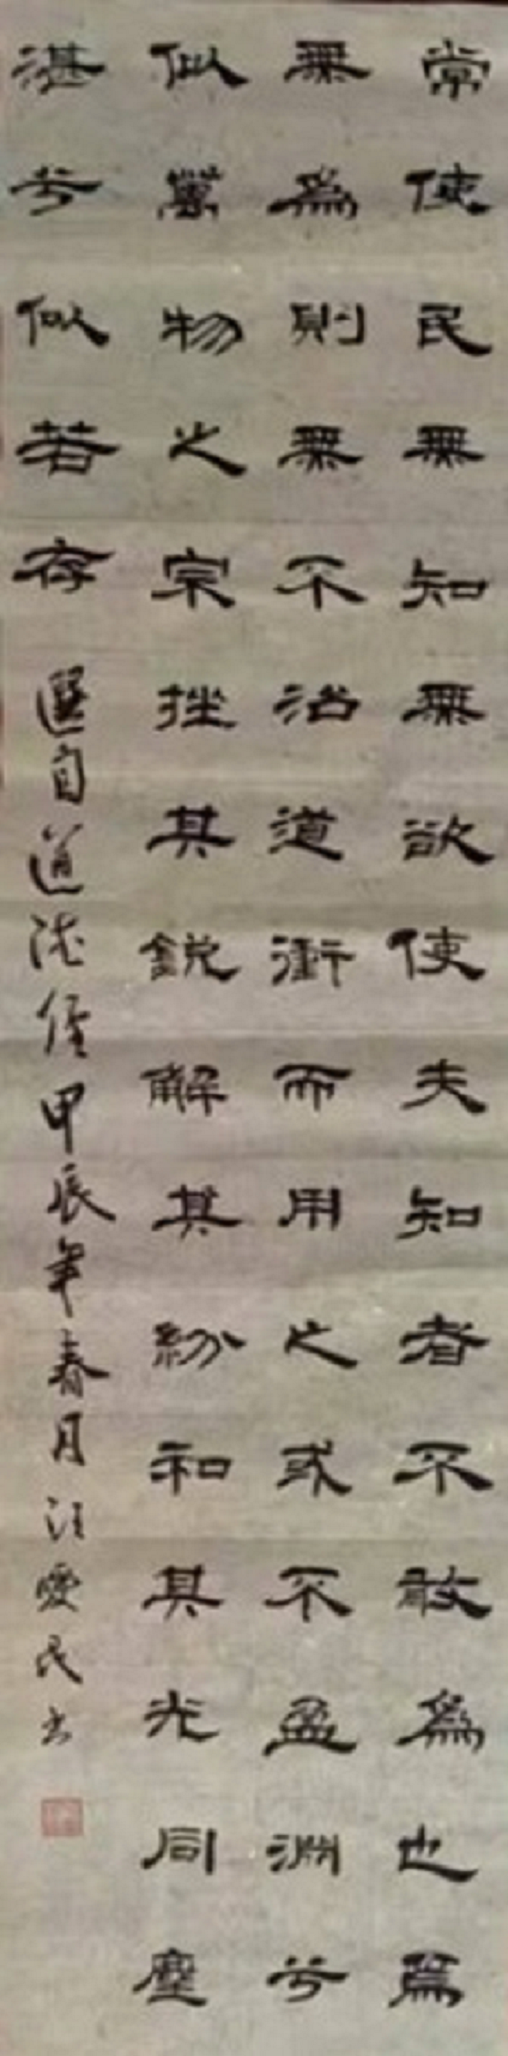 常使民無知無欲使夫知者不敢為也為
無為則無不治道衝而用之或不盈淵兮
似萬物之宗挫其銳解其紛和其光同塵
湛兮似若存 選自道德經甲辰年春月汪愛民书